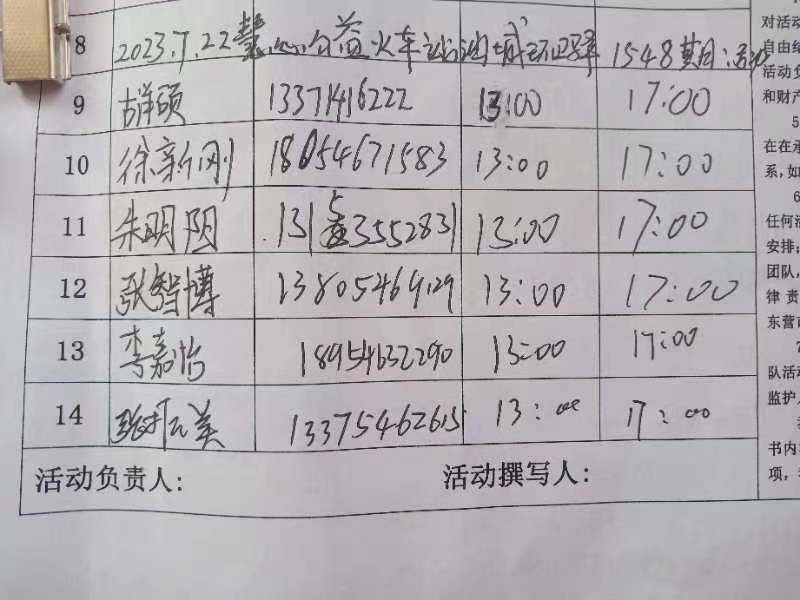 8 2023.7.22慧心公益火车站油城环卫驿 1548 黄月:活动
9 胡洋硕 13371416222 13:00 17:00
10 徐新刚 18054671583 13:00 17:00
11 朱明阴 13153552831 13:00 17:00
12 张智博 13805469129 13:00 17:00
13 李嘉怡 18954632290 13:00 17:00
14 13375462615 13:00 17:00
活动负责人: 活动撰写人:
对活动
自由
活动负
和财产
5
在在承
系,如
6
任何活
安排;
团队,
律 责
东营
7
队活动
监护人
书内
项,